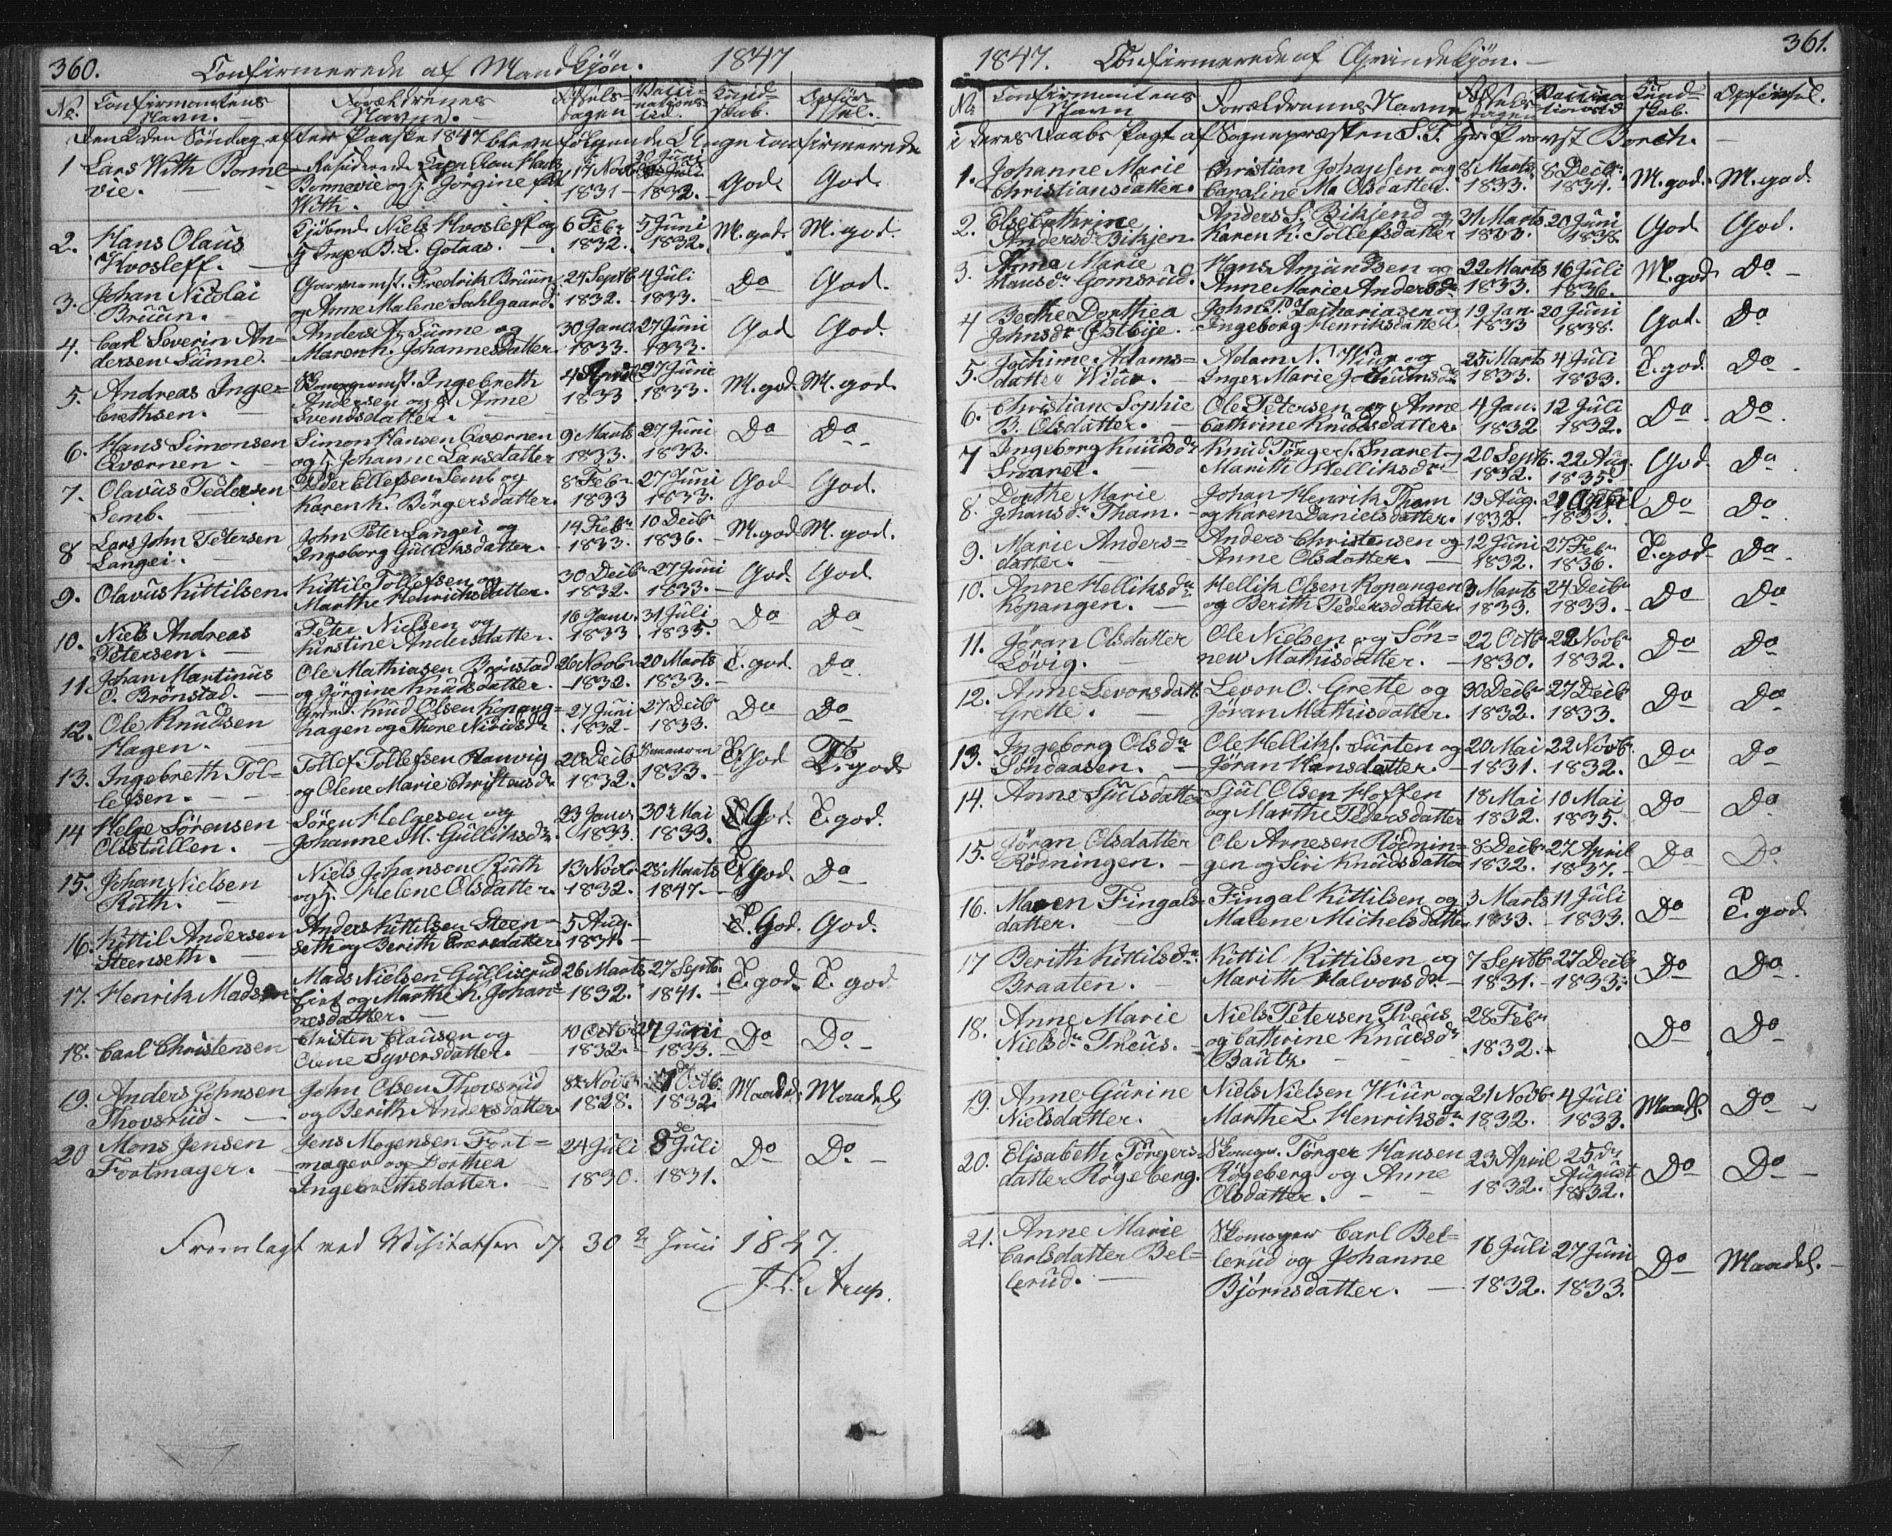 360. Confirmerede af Mandkjøn. 1847
No. Confirmantens Navn. Forældrenes Navne. Fødsels-dagen Vacci-nations-tid. Kund-skab. Opfør-sel.
Den 2den Søndag efter Paaske 1847 bleve følgende Unge confirmerede
1 Lars With Bonne-vie. Residerende Capn Bonnevie og F. Jørgine With. 17 Novbr 1831 1832. God. God.
2. Hans Olaus Kvosleff. Kjöbmd. Niels Kvosleff og F. Inger B. L. Gotaas. 6 Febr 1832. 5 Juni 1832. M. god. M. god.
3. Johan Nicolai Brüün. Garverm. Fredrik Brüün og Anne Malene Dahlgaard. 24 Septb. 1832. 4 Juli 1833. Do God.
4. Carl Severin An-dersen Sünne. Anders A. Sünne og Maren K. Johannesdatter. 30 Janr. 1833. 27 Juni 1833. God God.
5. Andreas Inge-brethsen. Ingebreth Andersen og F. Anne Svendsdatter. 4 April 1833 27 Juni 1833. M. god. M. god.
6. Hans Simonsen Qværnen. Simon Hansen Qværnen og F. Johanne Larsdatter 9 Marts 1833. 27 Juni 1833. Do Do
7. Olavus Pedersen Semb. Peder Ellefsen Semb og Karen K. Börgersdatter. 8 Febr 1833 27 Juni 1833. God God.
8 Lars John Petersen Langei. John Peter Langei og Ingeborg Gulliksdatter. 14 Febr 1833. 10 Decbr 1836. M. god M. god.
9. Olavus Kittilsen. Kittil Tollefsen og Marthe Henriksdatter. 30 Decbr 1832. 27 Juni 1833. God. God.
10. Niels Andreas Petersen. Peter Nielsen og Kirstine Andersdatter. 16 Janr. 1833. 31 Juli 1835. Do Do
11. Johan Martinus O. Brönstad. Ole Mathiasen Brönstad og Jörgine Knudsdatter. 26 Novbr 1832. 20 Marts 1833. T. god. Do
12. Ole Knudsen Hagen. Knud Olsen Kopang-hagen og Thore Niridsdr 27 Juni 1832. 27 Decbr 1833. Do Do
13. Ingebreth Tol-lefsen. Tollef Tollefsen Hauvig og Olene Marie Christensdr 20 Decb 1832. 1833. T. God T. god.
14 Helge Sörensen Olsstullen. Sören Helgesen og Johanne M. Gulliksdr. 23 Janr. 1833. 30 Mai 1833. T. God. T. god.
15. Johan Nielsen Ruth. Niels Johansen Ruth og F. Helene Olsdatter. 13 Novbr 1832. 28 Marts 1847. T. God. Do
16. Kittil Andersen Steenseth. Anders Kittilsen Steen-seth og Berith Evensdatter. 5 Aug. 1831. T. God. God.
17. Henrik Madsen Mads Nielsen Gulliserud og Marthe K. Johan-nesdatter. 26 Marts 1832. 27 Septb. 1841. T. god. T. god
18. Carl Christensen Cristen Clausen og Olene Syversdatter. 10 Octbr 1832. 27 Juni 1833. Do Do
19. Anders Johnsen Thovsrud John Olsen Thovsrud og Berith Andersdatter 8 Novbr 1828. 7 Octb. 1832. Maadel. Maadel.
20 Mons Jensen Fortmager. Jens Mogensen Fort-mager og Dorthea Ingebrethsdatter. 24 Juli 1830. 8de Juli 1831. Do Do
Fremlagt ved Visitatsen d. 30 Juni 1847.
J. L. Arup.
1847. Confirmerede af Qvindekjön. 361.
No. Confirmantens Navn Forældrenes Navne Födsels-dagen Vaccina-tionstid Kund-skab. Opförsel.
i deres Daabs Pagt af Sognepræsten S. T. Hr. Provst Borch.
1. Johanne Marie Christiansdatter. Christian Johansen og Caroline Ma. Olsdatter. 8 Marts 1833. 8 Decbr. 1834. M. god. M. god.
2. Else Cathrine Andersdr. Bikjen. Anders S. Bikjend og Karen K. Tollefsdatter 31 Marts 1833. 20 Juni 1838. God God.
3. Anne Marie Hansdr Gomsrud. Hans Amundsen og Anne Marie Andersdr 22 Marts 1833. 16 Juli 1836. M. god Do
4 Berthe Dorthea Johnsdr Östbye. John P. Zachariasen og Ingeborg Henriksdatter 19 Jan. 1833 20 Juni 1838. God. Do
5. Jochime Adams-datter Wiur. Adam N. Wiur og Inger Marie Jochumsdr 25 Marts 1833. 4 Juli 1833. T. god. Do
6. Christiane Sophie B. Olsdatter. Ole Petersen og Anne Cathrine Knudsdatter. 4 Jan. 1832 12 Juli 1832. Do Do
7 Ingeborg Knudsdr Snaret. Knud Törgers. Snaret og Marith Helliksdr. 20 Septb. 1832. 22 Aug. 1835. God. Do
8. Dorthe Marie Johansdr Tham. Johan Henrik Tham og Karen Danielsdatter. 19 Aug. 1832. April 1833. Do Do
9. Marie Anders-datter. Anders Christensen og Anne Olsdatter. 12 Juni 1832. 27 Febr 1836. T. god Do
10. Anne Helliksdr Kopangen. Hellik Olsen Kopangen og Berith Pedersdatter 3 Marts 1833. 24 Decbr 1833. Do Do
11. Jöran Olsdatter Lövig. Ole Nielsen og Sön-new Mathisdatter. 22 Octbr 1830. 22 Novbr 1832. Do Do
12. Anne Levorsdatt. Grette. Levor O. Grette og Jöran Mathisdatter. 30 Decbr 1832. 27 Decb 1833. Do Do
13. Ingeborg Olsdr Söndaasen. Ole Helliks. Surten og Jöran Hansdatter. 20 Mai 1831. 22 Novb. 1832. Do Do
14. Anne Sjulsdatter Sjul Olsen Hoffen og Marthe Pedersdatter 18 Mai 1832. 10 Mai 1835. Do Do
15. Jöran Olsdatter Rödningen. Ole Arnesen Rödnin-gen og Siri Knudsdatter 8 Decbr 1832. 27 April 1837. Do Do
16. Maren Fingals-datter. Fingal Kittilsen og Malene Michelsdatter 3 Marts 1833. 11 Juli 1833. Do T. god.
17 Berith Kittilsdr Braaten. Kittil Kittilsen og Marith Halvorsdr. 7 Septb. 1831. 27 Decb. 1833. Do Do
18. Anne Marie Nielsdr Preus. Niels Petersen Preus og Cathrine Knudsdr Bautz. 28 Febr 1832. Do Do
19. Anne Gurine Nielsdatter. Niels Nielsen Wiur og Marthe L. Henriksdr 21 Novbr 1832. 4 Juli 1833. Maadel. Do
20. Elisabeth Törgers-datter Rögeberg. Skomager. Törger Hansen Rögeberg og Anne Olsdatter. 23 April 1832. 25de August 1832. Do Do
21. Anne Marie Carlsdatter Bel-lerud. Skomager Carl Bel-lerud og Johanne Bjørnsdatter. 16 Juli 1832. 27 Juni 1833. Do Maadel.